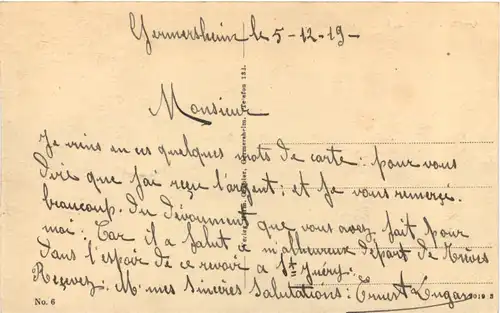 Germersheim le 5-12-19-
Monsieur
Je viens en ces quelques mots de carte: pour vous
Dire que j'ai reçu l'argent; et Je vous remerçi.
beaucoup. Du Dévoument que vous avez fait pour
moi. Car il a falut ce malheureux départ de
Dans l'espoir de ce revoir a St Juéry.
Recevez: Mr mes Sincères Salutations: Ernest
No. 6